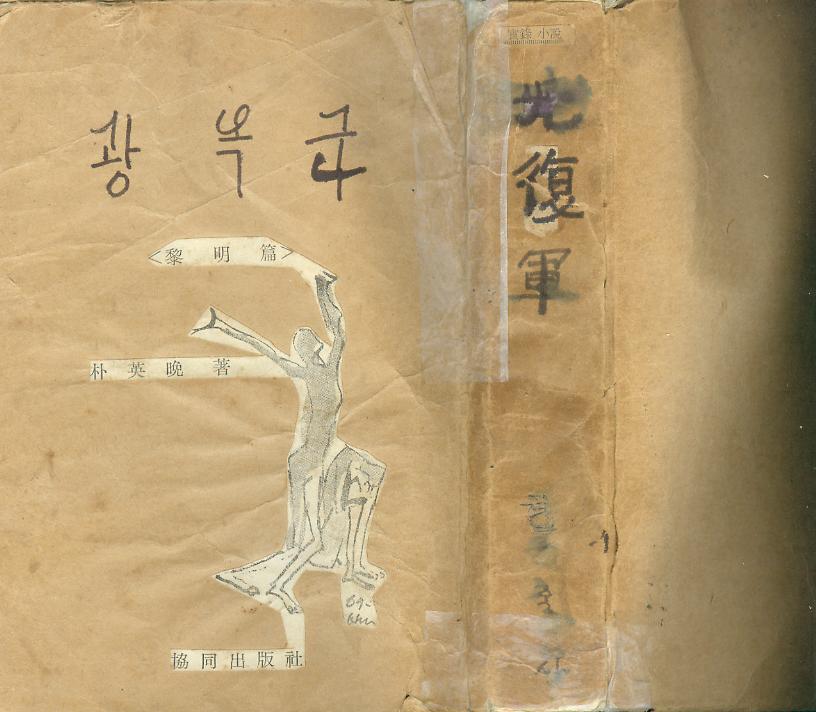 광 복 군
<黎 明 篇>
朴 英 晩 著
協 同 出 版 社
實錄 小說
光復軍